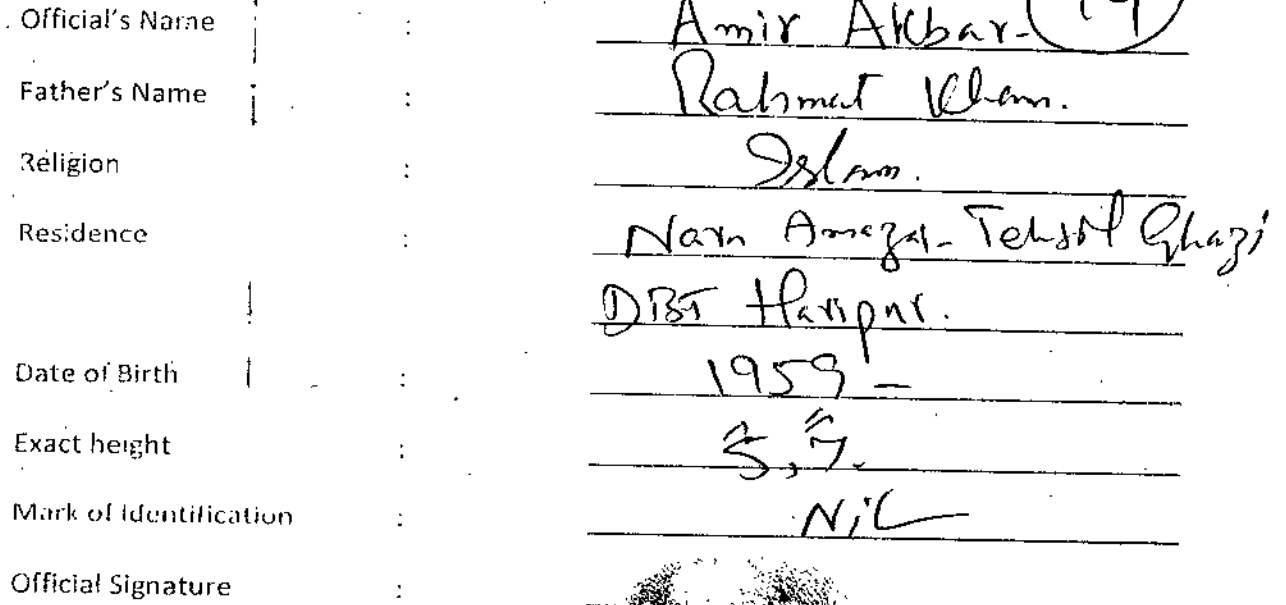 Official's Name : Amir Akbar-
Father's Name : Rahmat Khan.
Religion : Islam.
Residence : Nara Amazai- Tehsil Ghazi
Distt Haripur.
Date of Birth : 1959 -
Exact height : 5, 7.
Mark of identification : Nil
Official Signature :